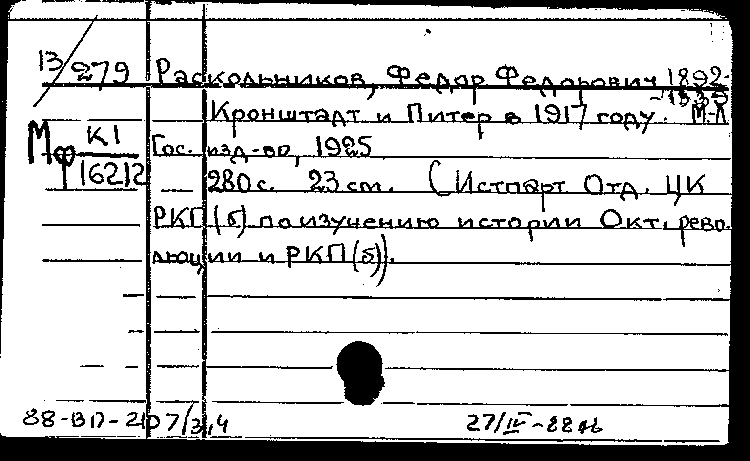 13/279 Раскольников, Федор Федорович 1892-
-1939
Кронштадт и Питер в 1917 году. М-Л
Мф К1/16212 Гос. изд-во, 1925
— 280 с. 23 см. (Истпарт Отд. ЦК
РКП(б) по изучению истории Окт. рево-
люции и РКП(б)).
88-ВП-2107/3,4 27/IV-88